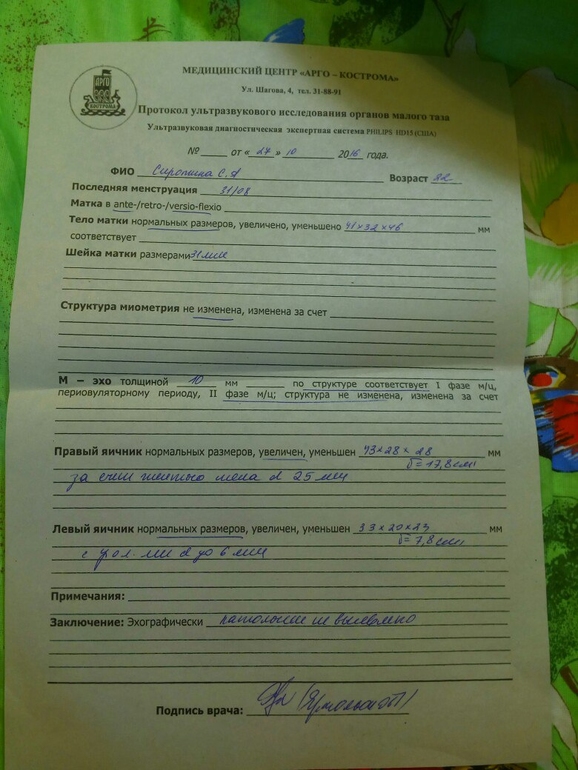 МЕДИЦИНСКИЙ ЦЕНТР «АРГО – КОСТРОМА»
Ул. Шагова, 4, тел. 31-88-91
АРГО
КОСТРОМА
Протокол ультразвукового исследования органов малого таза
Ультразвуковая диагностическая экспертная система PHILIPS HD15 (США)
№ от « 27 » 10 2016 года.
ФИО С.А Возраст 32
Последняя менструация 31/08
Матка в ante-/retro-/versio-flexio
Тело матки нормальных размеров, увеличено, уменьшено 41×32×46 мм
соответствует
Шейка матки размерами 31мм
Структура миометрия не изменена, изменена за счет
М – эхо толщиной 10 мм по структуре соответствует I фазе м/ц,
периовуляторному периоду, II фазе м/ц; структура не изменена, изменена за счет
Правый яичник нормальных размеров, увеличен, уменьшен 43×28×28 мм
V=17,8см3
за счет желтого тела d 25 мм
Левый яичник нормальных размеров, увеличен, уменьшен 33×20×23 мм
V=7,8см3
с фол-ми d до 6 мм
Примечания:
Заключение: Эхографически патологии не выявлено
Подпись врача: